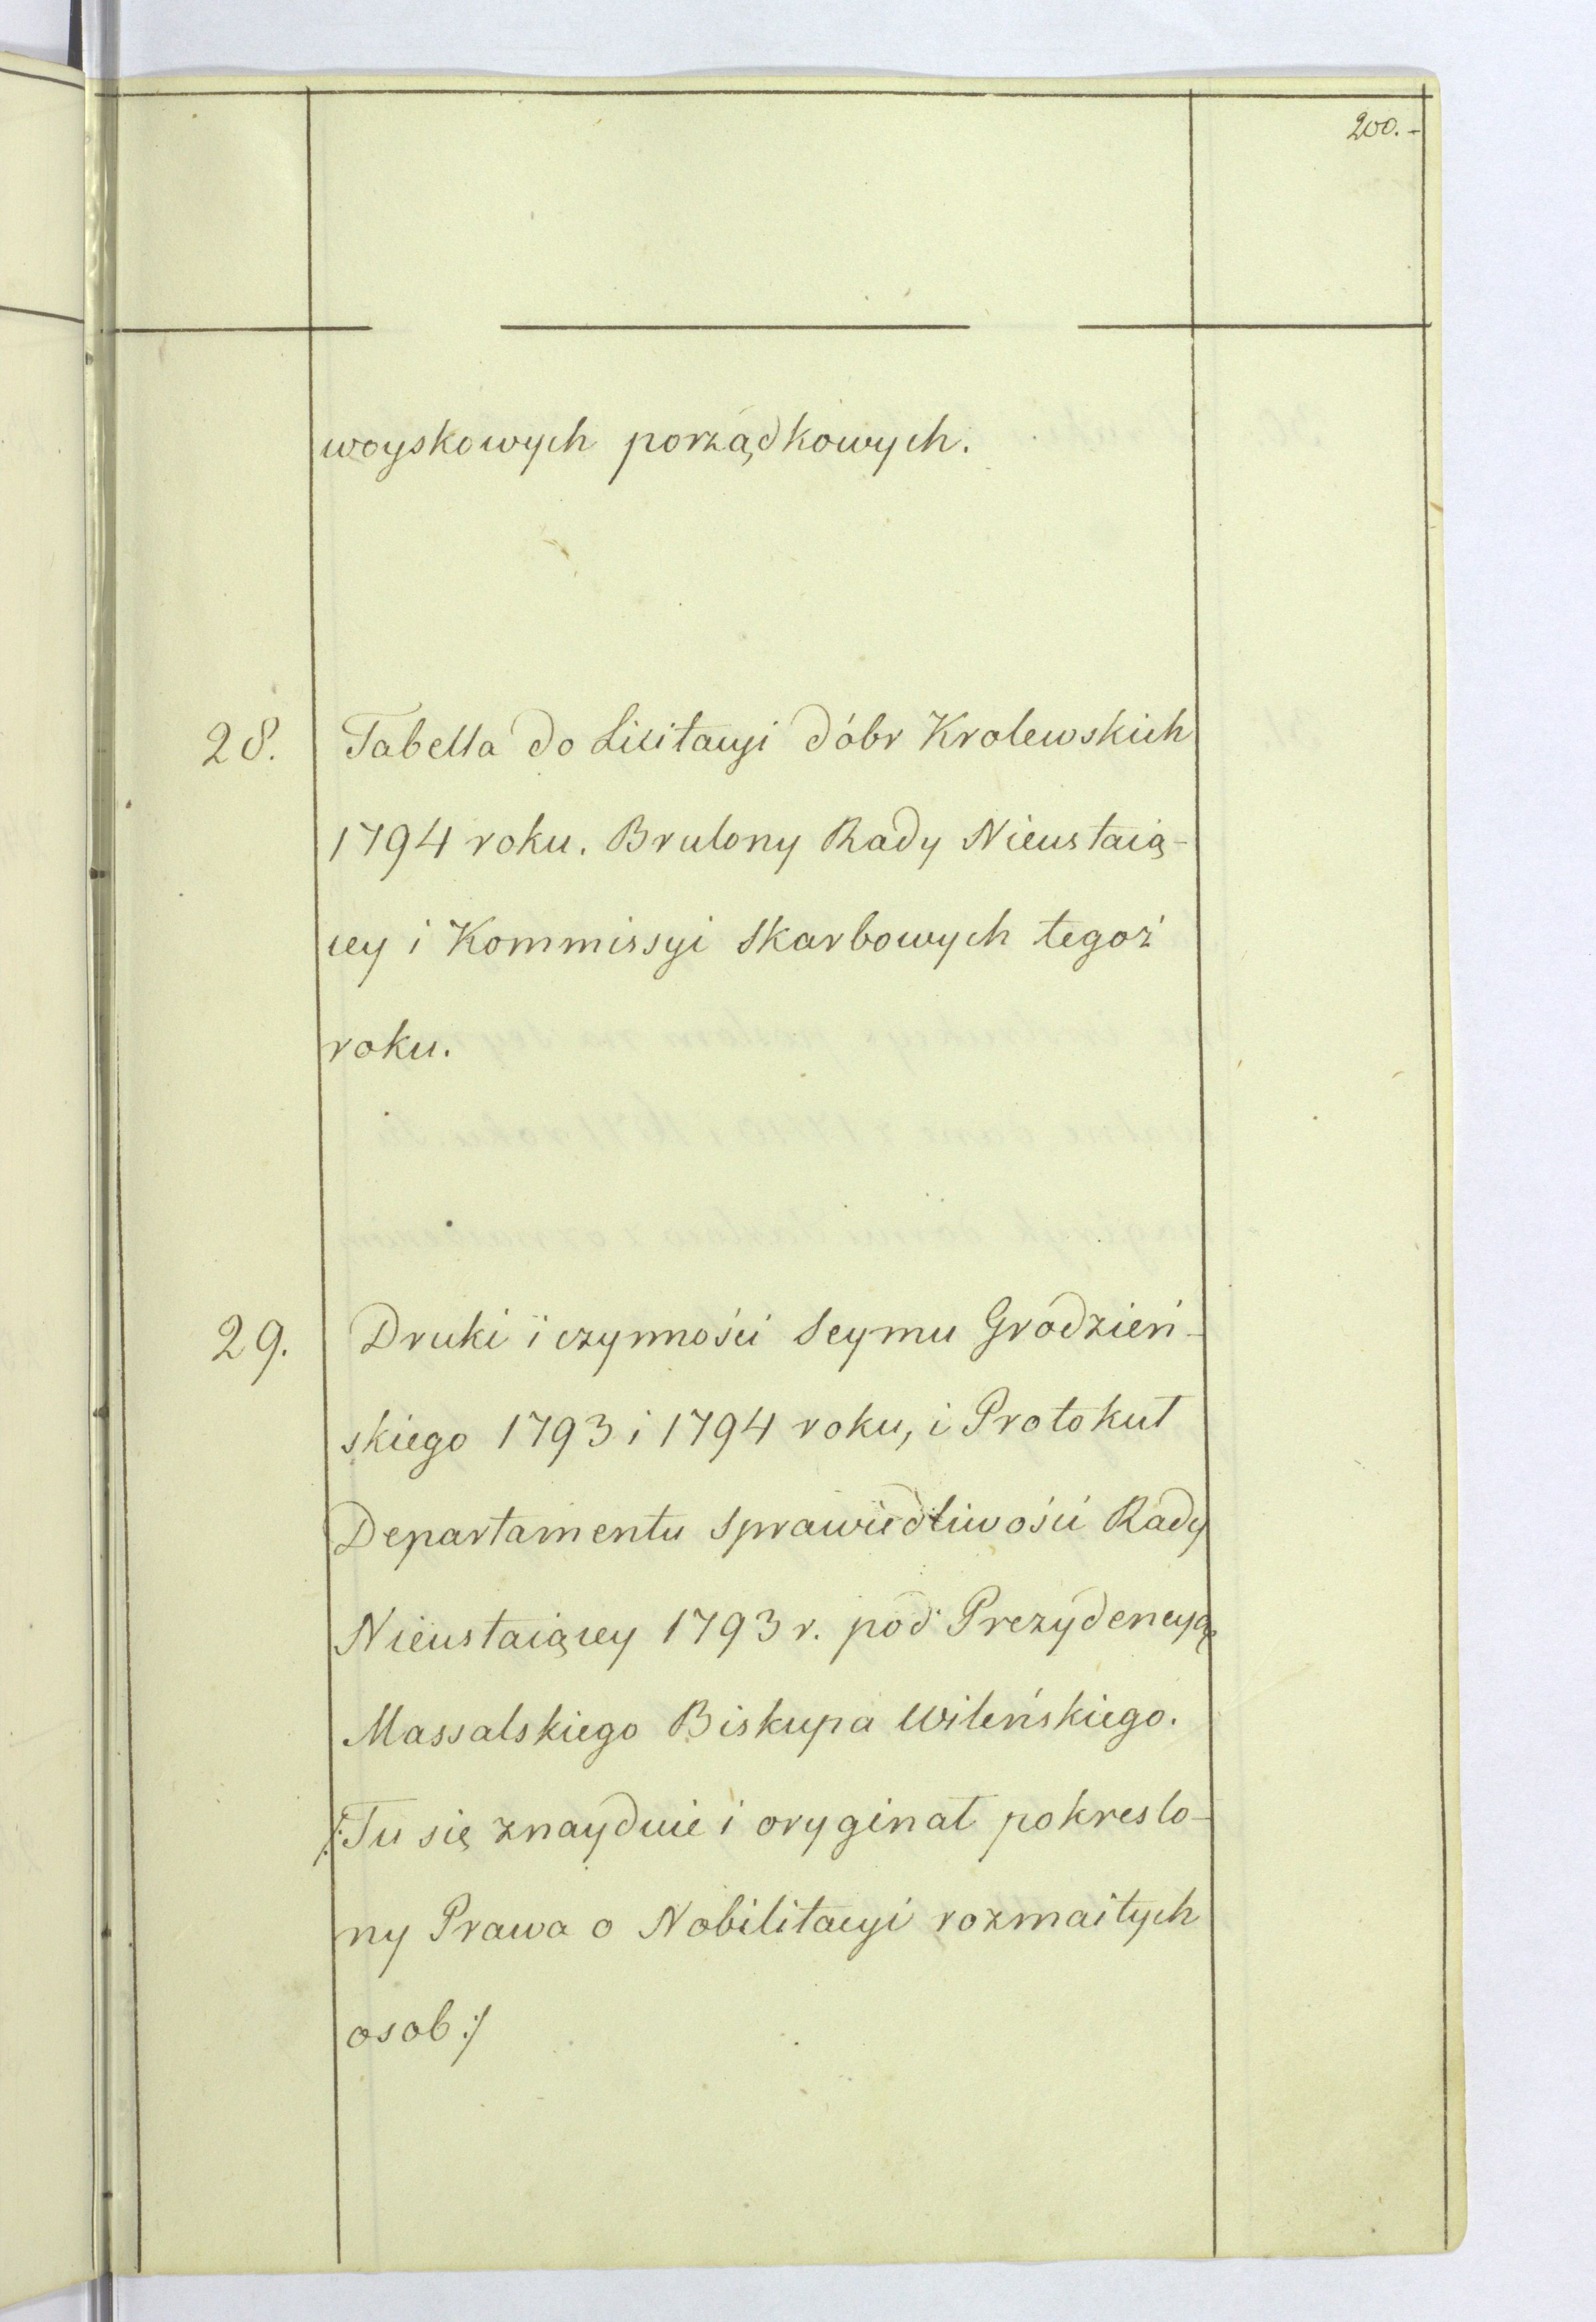 200.-
woyskowych porządkowych.
28. Tabella do Licitacyi dóbr Krolewskich
1794 roku. Brulony Rady Nieustaią-
cey i Kommissyi Skarbowych tegoż
roku.
29. Druki i czynności Seymu Grodzień-
skiego 1793 i 1794 roku, i Protokuł
Departamentu Sprawiedliwości Rady
Nieustaiącey 1793 r. pod Prezydencyą
Massalskiego Biskupa Wileńskiego.
/:Tu się znayduie i oryginał pokreslo-
ny Prawa o Nobilitacyi rozmaitych
osob:/